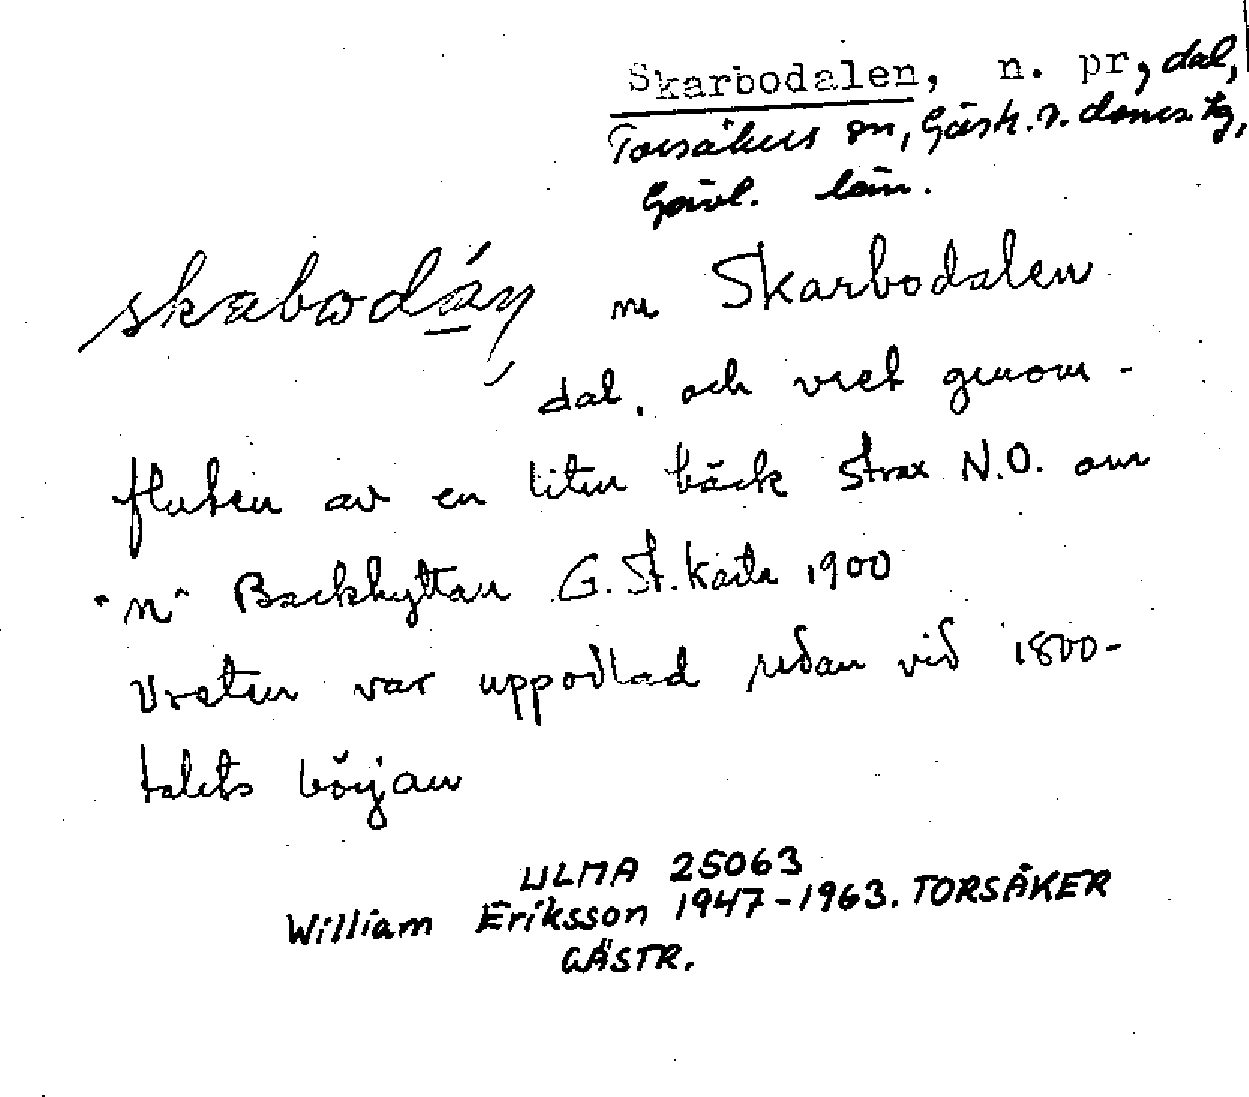 Skarbodalen, n. pr, dal,
Torsåkers sn, Gästr. ö. doms. tg,
Gävl. län.
skabodáŋ m Skarbodalen
dal, och vret genom-
fluten av en liten bäck strax N.O. om
"n" Backhyttan G.St. karta 1900
Vreten var uppodlad redan vid 1800-
talets början
ULMA 25063
William Eriksson 1947-1963. TORSÅKER
GÄSTR.